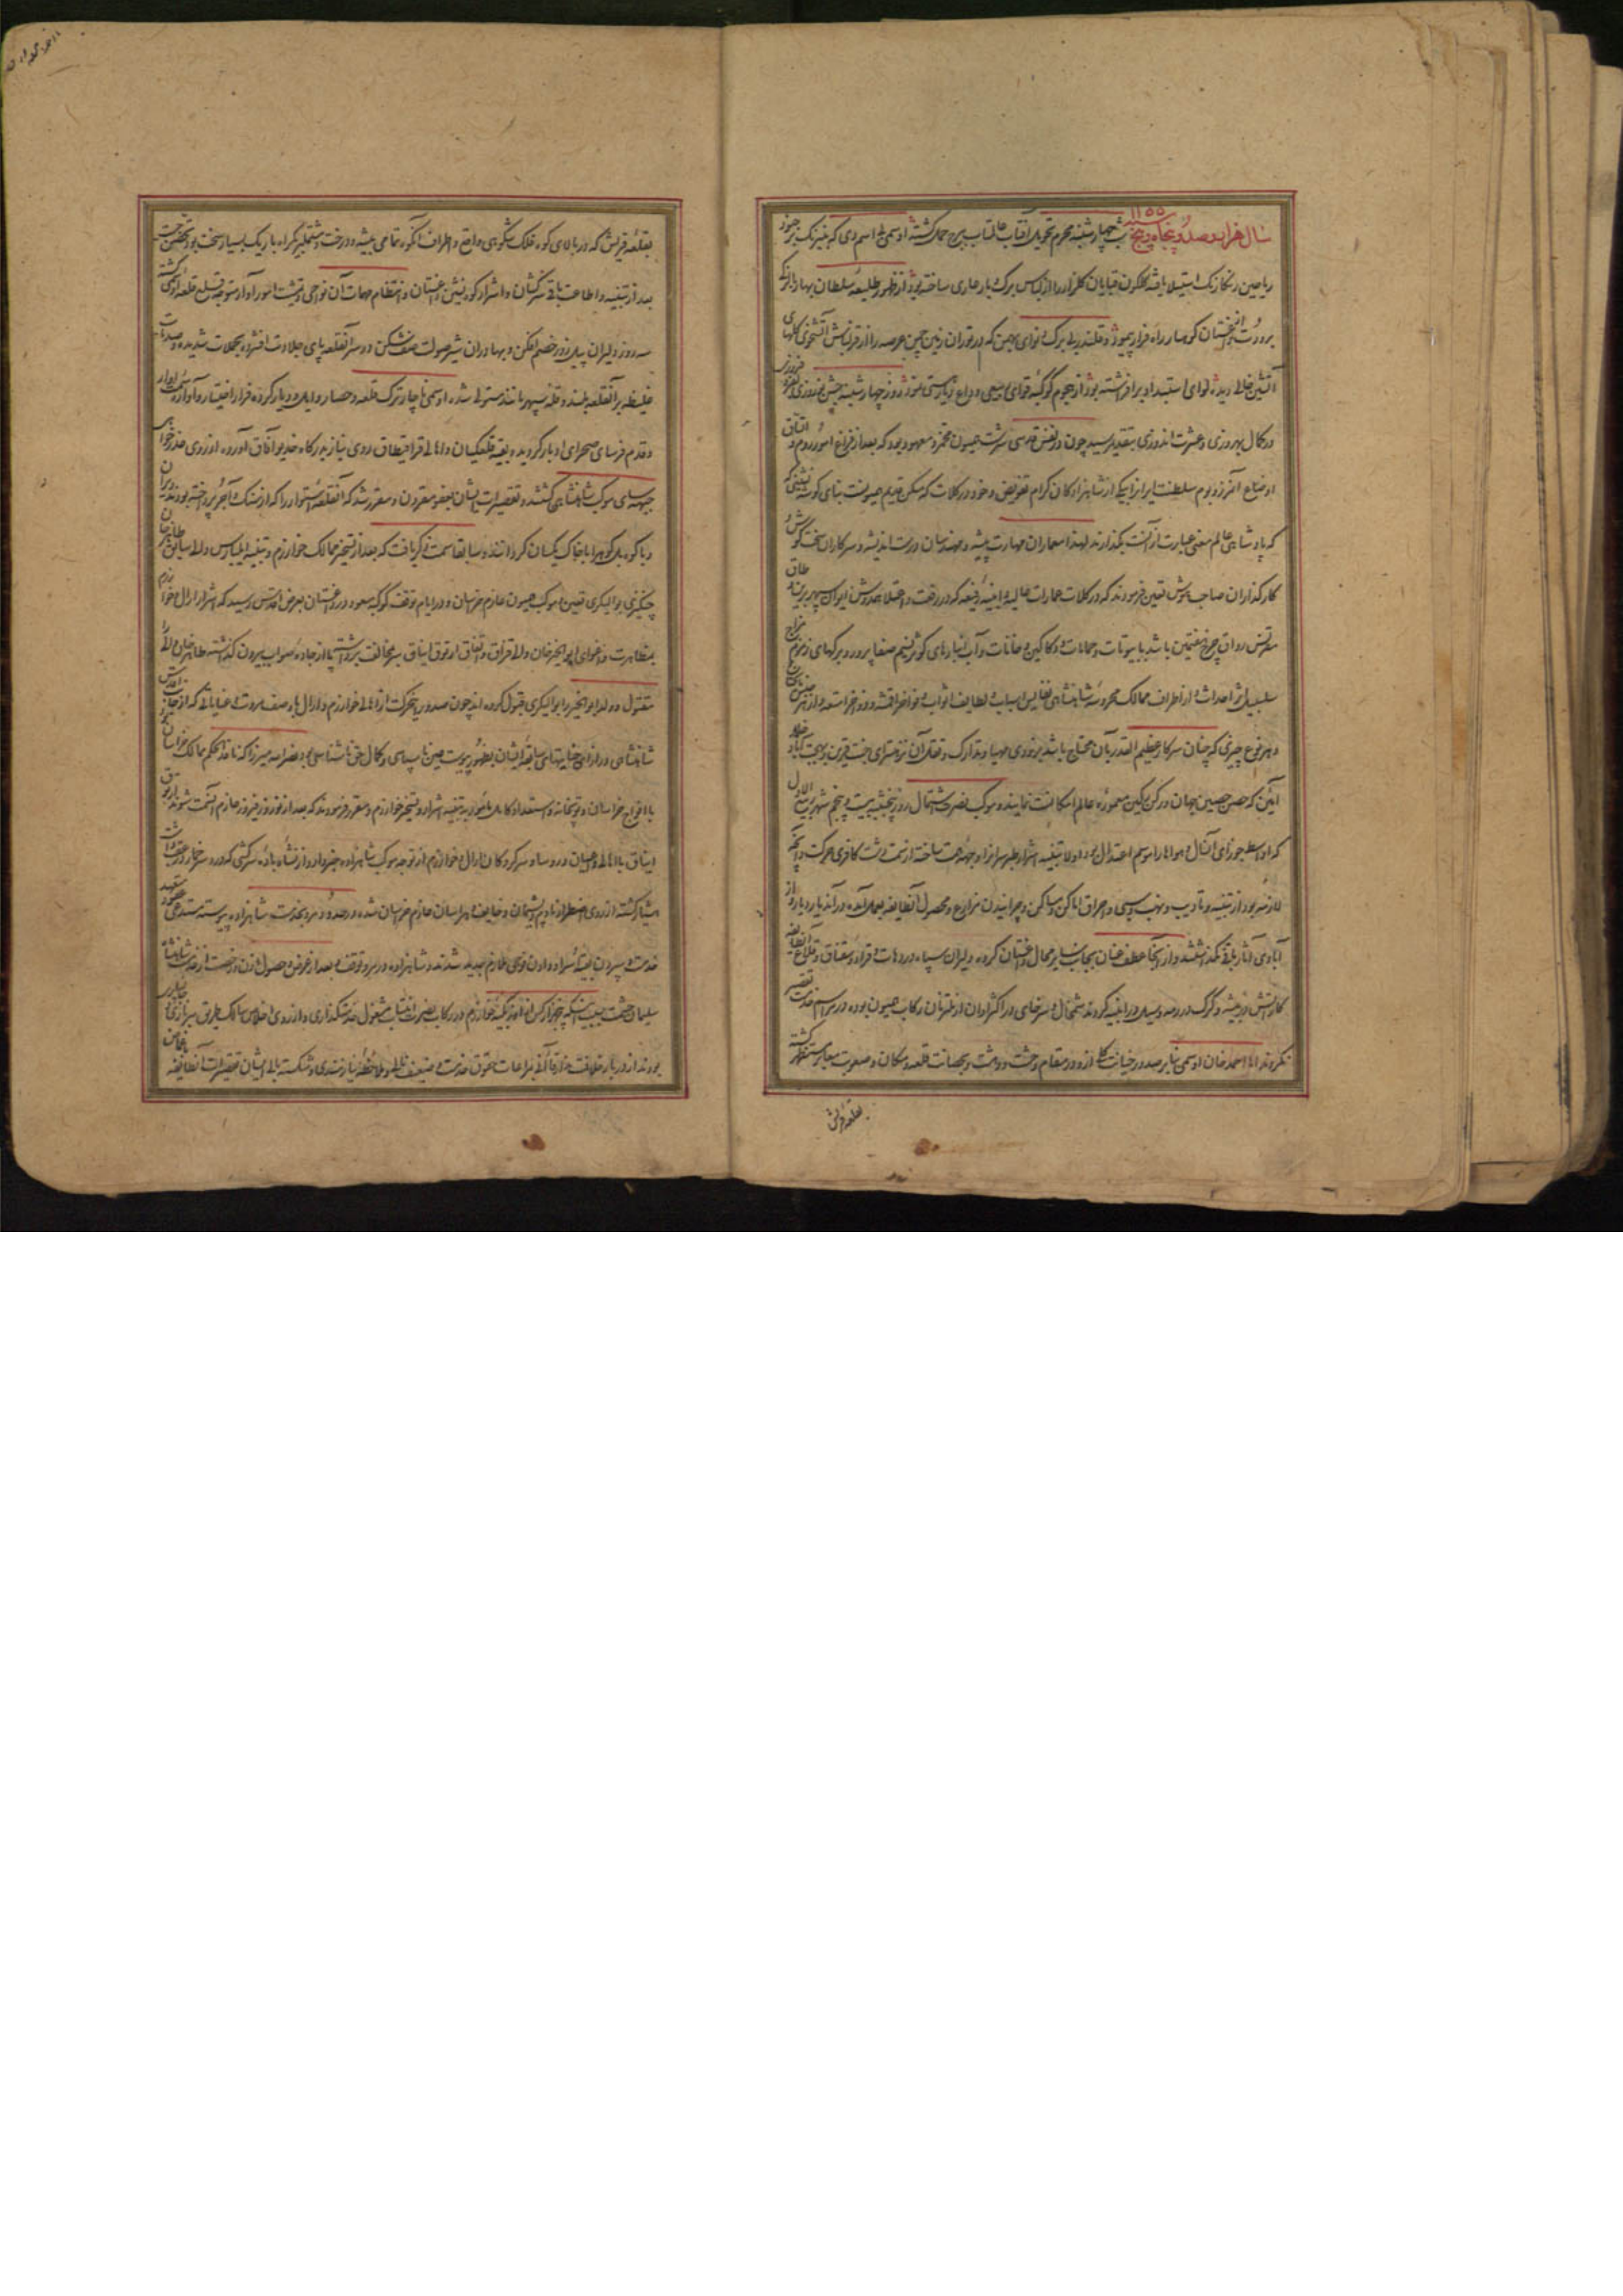 سال هزار و صد و پنجاه و پنج ۱۱۵۵ شب چهارشنبه محرم تحویل آفتاب عالمتاب ببرج حمل گشته اوسمی اسم دی که به نیرنگ بر جنود
ریاحین رنگارنگ استیلا یافته گلگون قبایان گلزار را از لباس برگ و بار عاری ساخته بود از ظهور طلیعه سلطان بهار
برودت از خستان کوهسار راه فرار پیمود و قلندر بی برگ و نوای بهمن که در توران زمین چمن عرصه را از قزلباش آتشخوی گلهای
آتشین خالی دیده لوای استبداد برافراشته بود از هجوم کوکبه قوای ربیعی وداع هستی نمود روز چهارشنبه جشن نوروزی
در کمال بهروزی و عشرت اندوزی بتقدیم رسید چون در نفس قدسی سرشت همیون مخمر و معهود بود که بعد از فراغ امور روم و اتفاق
اوضاع آن مرز و بوم سلطنت ایران را بیکی از شاهزادگان کرام تفویض و خود در کلات که مسکن قدیم همیونست بنای گوشه نشینی که
که پادشاهی عالم معنی عبارت از آنست بگذارند لهذا معماران مهارت پیشه و مهندسان درست اندیشه و سرکاران سخت کوش و
کارگذاران صاحب هوش تعیین فرمودند که در کلات عمارات عالیه و ابنیه رفیعه که در رفعت و اعتلا همدوش ایوان سپهر برین و طاق
مقرنس رواق چرخ هفتمین باشد با بیوتات و حمامات و دکاکین و خانات و آب انبارهای کوثر تسنیم صفا پرور و برکهای زمزم مزاج
سلسبیل اثر احداث و از اطراف ممالک محروسه شاهنشاهی نفایس اسباب و لطایف اثواب و فواخر اقمشه و ذخایر امتعه و از هر جنس
و هر نوع چیزی که چنان سرکار عظیم القدر بآن محتاج باشد بزودی مهیا و تدارک و نقل آن نزهتسرای جنت قرین و بهجت آباد خلد
آئین که حصن حصین جهان و رکن رکین معموره عالم امکانست نمایند و موکب نصرت اشتمال روز پنجشنبه بیست و پنجم شهر ربیع الاول
که اواسط جوزای آنسال و هوا را موسم اعتدال بود اولا بتنبیه اشرار طبرسرانرا وجهه همت ساخته از سمت دشت کافری حرکت و آنچه
لازمه بود از تنبیه و تادیب و نهب و سبی و احراق اماکن و مساکن و چرانیدن مزارع و محصول آنطایفه بعمل آمده در آن دیار دیار و از
آبادی آثار باقی نگذاشتند و از آنجا عطف عنان بجانب سایر محال داغستان کرده دلیران سپاه در دهات و قراء و سقناق و قلاع آنطایفه
کار آتش در بیشه و گرگ در رمه و سیل در ابنیه کردند شمخال و سرخای در اکثر اوان از ملتزمان رکاب همیون بوده در مراسم خدمت تقصیر
نکردند اما احمد خان اوسمی بنابر صدور خیانت کلی ازو در مقام وحشت و دهشت و بحصانت قلعه و مکان و صعوبت معابر مستظهر گشته
بقلعه قریش
بقلعه قریش که در بالای کوه فلک شکوهی واقع و اطراف آنکوه تمامی بیشه و درخت و مشتمل بر یکراه باریک بسیار سخت بود تحصن جست
بعد از تنبیه و اطاعت باقی سرکشان و اشرار کوه نشین داغستان و انتظام مهمات آن نواحی و تمشیت امور آوار متوجه تسخیر قلعه اوسمی گشته
سه روز دلیران پیل زور خصم افکن و بهادران شیر صولت صف شکن در سر آنقلعه پای جلادت افشرده بحملات شدیده و صدمات
غلیظه بر آنقلعه بلند و قله سپهر مانند مستولی شده اوسمی ناچار ترک قلعه و حصار و ایل و دیار کرده فرار اختیار و آواره سمت آوار
و قدم فرسای صحرای ادبار گردیده و بقیه قلعگیان و اهالی قراقیطاق روی نیاز بدرگاه خدیو آفاق آورده از روی عذرخواهی
جبهه سای موکب شاهنشاهی گشتند و تقصیرات ایشان بعفو مقرون و مقرر شد که آنقلعه استوار را که از سنک و آجر پرداخته بودند ویران
و با کوه بل کوه را با خاک یکسان گردانند و سابقا سمت ذکر یافت که بعد از تسخیر ممالک خوارزم و تنبیه ایلبارس والی سابق طاهر خان
چنکیزی بوالیگری تعیین و موکب همیون عازم خراسان و در ایام توقف کوکبه مسعود در داغستان بعرض اقدس رسید که اشرار ارال و خوارزم
بمظاهرت و اغوای ابوالخیر خان والی قزاق و اتفاق ارتوق ایناق سر مخالفت برداشته پا از جاده صواب بیرون گذاشته طاهر خان والی را
مقتول و ولد ابوالخیر را بوالیگری قبول کرده اند چون صدور این حرکت از اهالی خوارزم و ارال با وصف مروت و عنایاتی که از جانب اقدس
شاهنشاهی در ازای جنایتهای سابقه ایشان بظهور پیوست عین ناسپاسی و کمال حق ناشناسی بود نصرالله میرزا که نافذ الحکم ممالک خراسان بود
با افواج خراسان و توپخانه و استعداد کامل مامور به تنبیه اشرار و تسخیر خوارزم و مقرر فرمودند که بعد از نوروز فیروز عازم آنسمت شوند ارتوق
ایناق با اهالی و اعیان و روسا و سرکردگان ارال و خوارزم از توجه موکب شاهزاده خبردار و از نشاه باده سرکشی که در سر خمار
هشیار گشته از روی اضطرار نادم و پشیمان و خایف و هراسان عازم خراسان شده در حدود مرو بخدمت شاهزاده پیوسته مستدعی عفو و متعهد
خدمت و سپردن بقیه اسرا و دادن فوجی ملازم جدید شدند و شاهزاده در مرو توقف و بعد از عرض و حصول اذن و رخصت از خدمت شاهنشاه
بودند از دربار خلافت مدار خاقانی مراعات حقوق خدمت و ضعیف نالی و ملاحظه نیازمندی و شکسته بالی ایشان تقصیرات آنطایفه